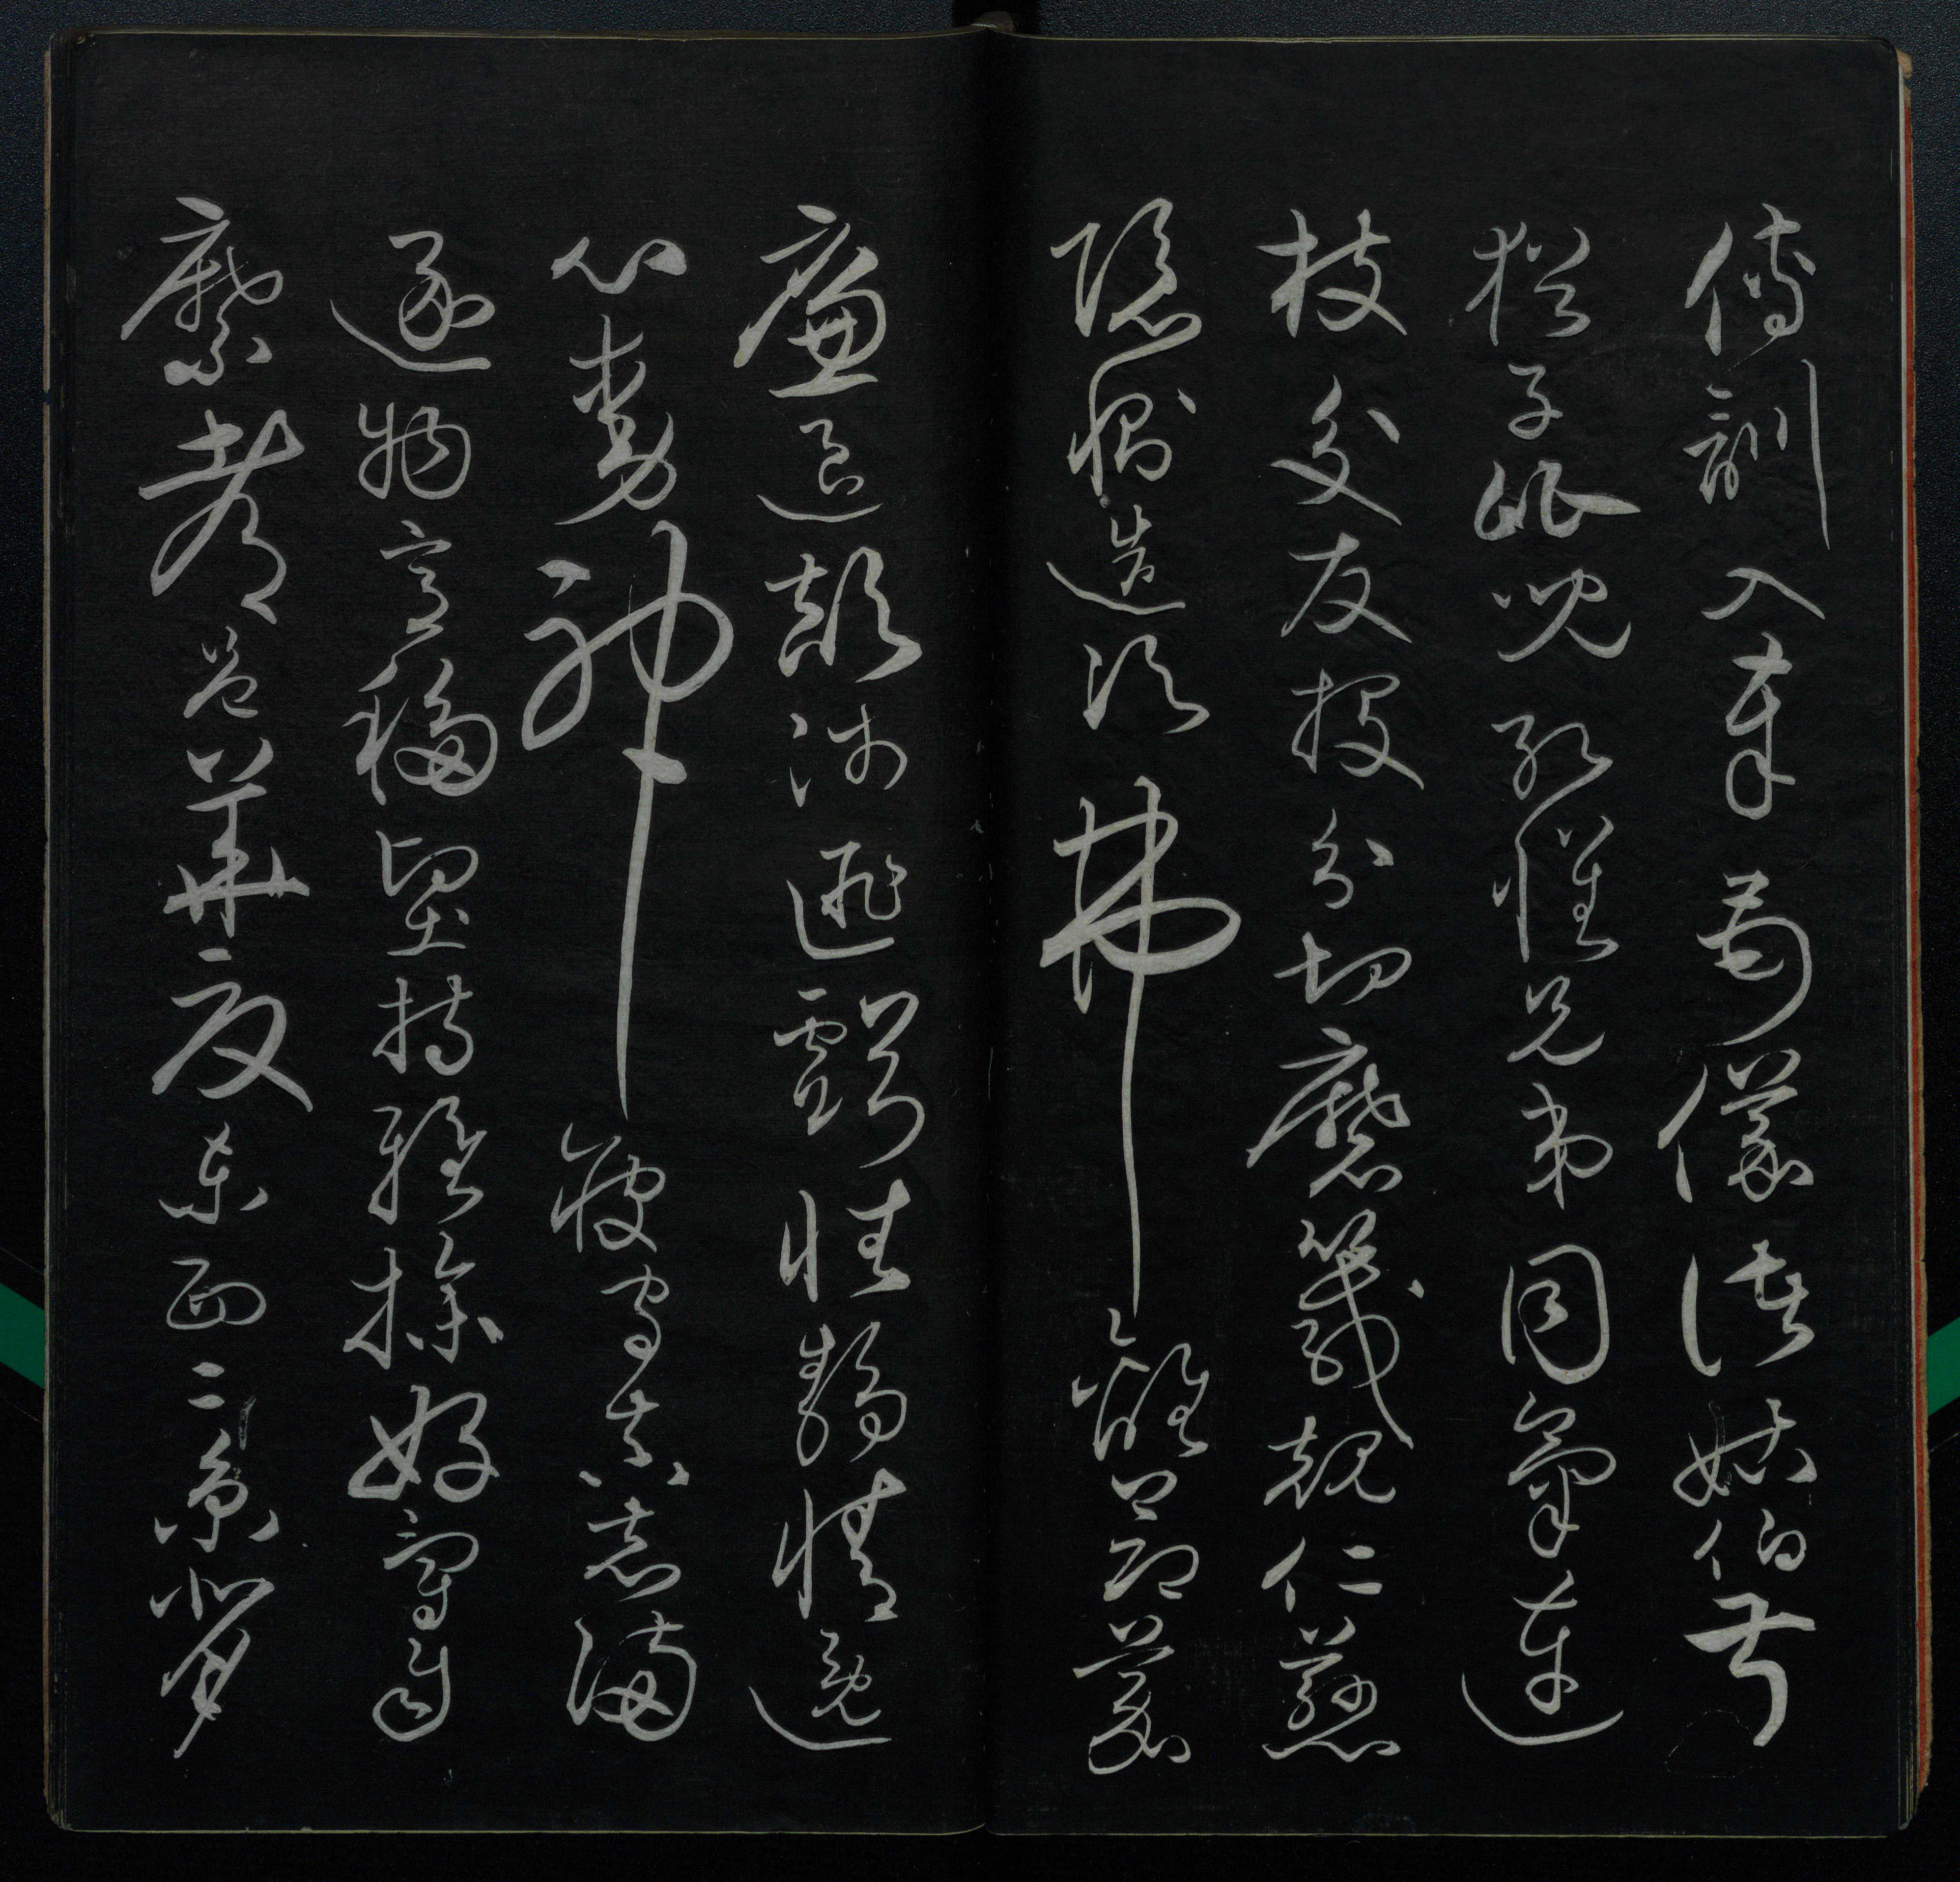 傅訓入奉母儀諸姑伯叔
猶子比兒孔懷兄弟同氣連
枝交友投分切磨箴規仁慈
隱惻造次弗離節義
廉退顛沛匪虧性靜情逸
心動神疲守真志滿
逐物意移堅持雅操好爵自
縻都邑華夏東西二京背